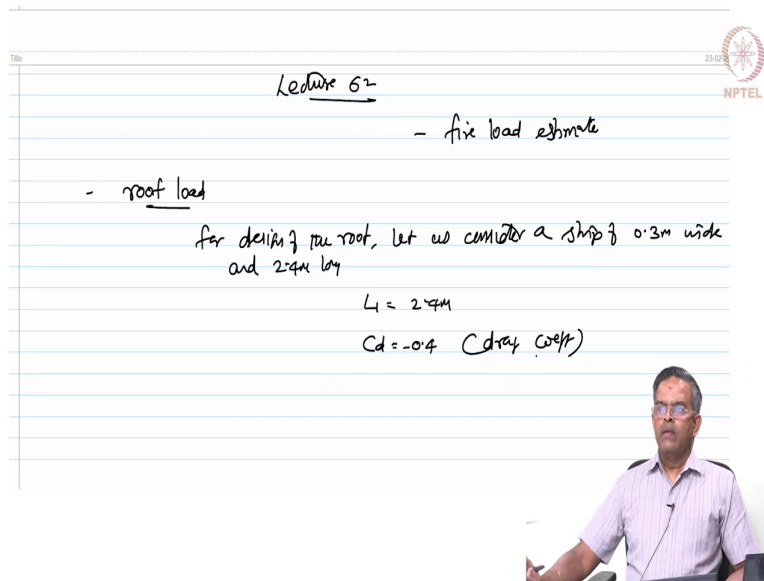 Title
23-02-
NPTEL
Lecture 62
- fire load estimate
- roof load
for design of the roof, let us consider a strip of 0.3m wide
and 2.4m long
L1 = 2.4M
Cd = -0.4 (drag coeff)